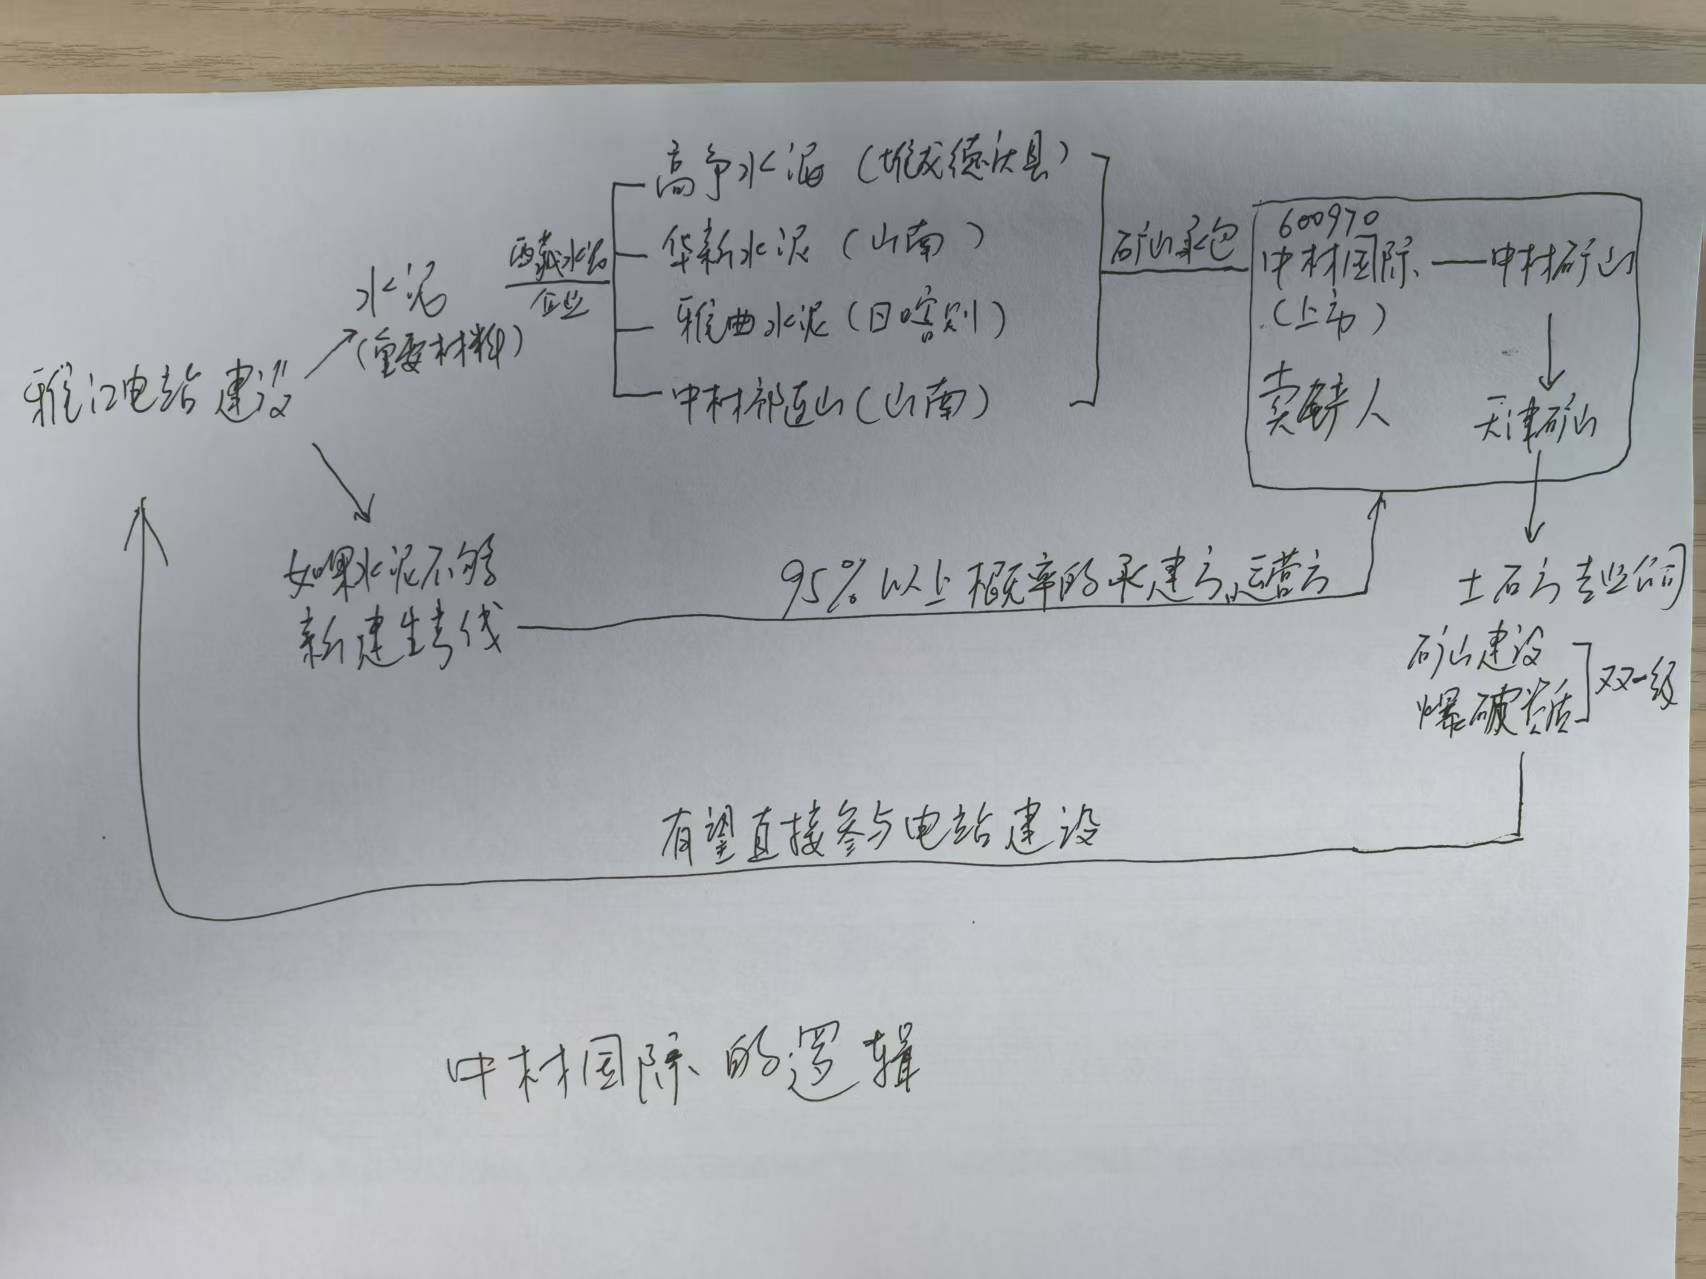 高争水泥（堆龙德庆县）
华新水泥（山南）
雅曲水泥（日喀则）
中材祁连山（山南）
西藏水泥
企业
水泥
（重要材料）
雅江电站建设
矿山承包
600970
中材国际 — 中材矿山
（上市）
卖铲人
天津矿山
如果水泥不够
新建生产线
95%以上概率的承建方、运营方
土石方专业公司
矿山建设
爆破资质
双一级
有望直接参与电站建设
中材国际的逻辑